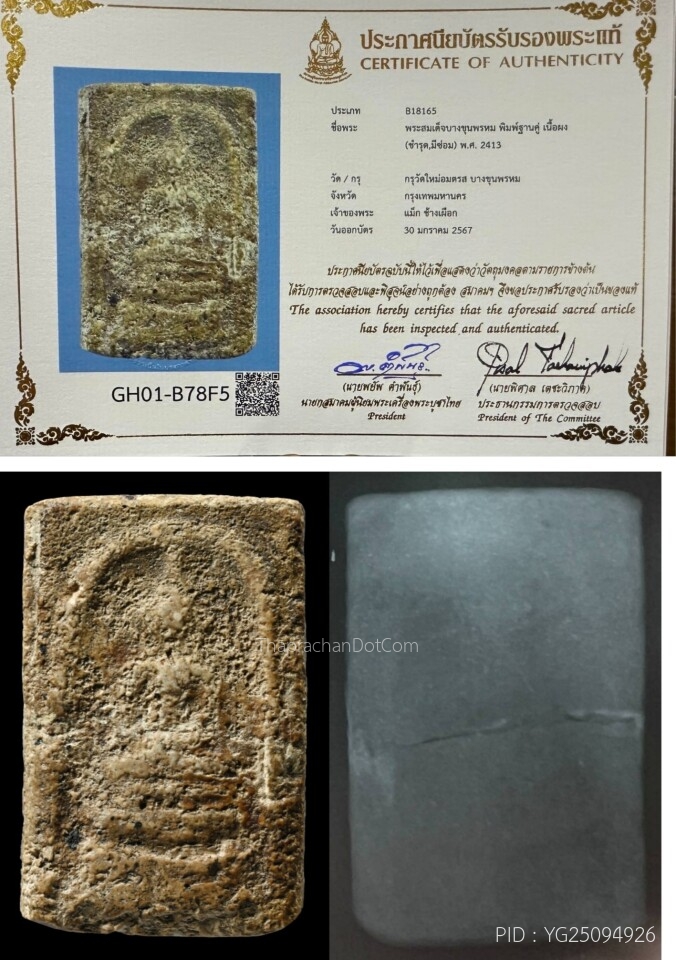 ประกาศนียบัตรรับรองพระแท้
CERTIFICATE OF AUTHENTICITY
ประเภท B18165
ชื่อพระ พระสมเด็จบางขุนพรหม พิมพ์ฐานคู่ เนื้อผง
(ชำรุด,มีซ่อม) พ.ศ. 2413
วัด / กรุ กรุวัดใหม่อมตรส บางขุนพรหม
จังหวัด กรุงเทพมหานคร
เจ้าของพระ แม็ก ช้างเผือก
วันออกบัตร 30 มกราคม 2567
ประกาศนียบัตรฉบับนี้ให้ไว้เพื่อแสดงว่าวัตถุมงคลตามรายการข้างต้น
ได้รับการตรวจสอบและพิสูจน์อย่างถูกต้อง สมาคมฯ จึงขอประกาศรับรองว่าเป็นของแท้
The association hereby certifies that the aforesaid sacred article
has been inspected and authenticated.
(นายพยัพ คำพันธุ์)
นายกสมาคมผู้นิยมพระเครื่องพระบูชาไทย
President
(นายพิศาล เตชะวิภาค)
ประธานกรรมการตรวจสอบ
President of The Committee
GH01-B78F5
ThaprachanDotCom
PID : YG25094926